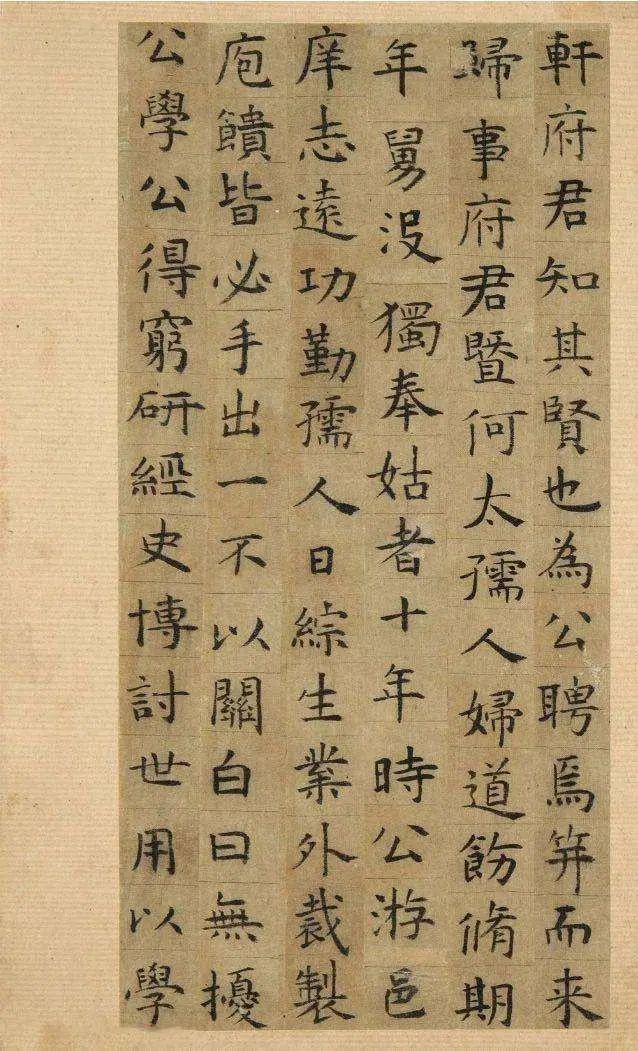 軒府君知其賢也為公聘焉笄而来
歸事府君暨何太孺人婦道飭脩期
年舅没獨奉姑者十年時公游邑
庠志遠功勤孺人日綜生業外裁製
庖饋皆必手出一不以關白曰無擾
公學公得窮研經史博討世用以學